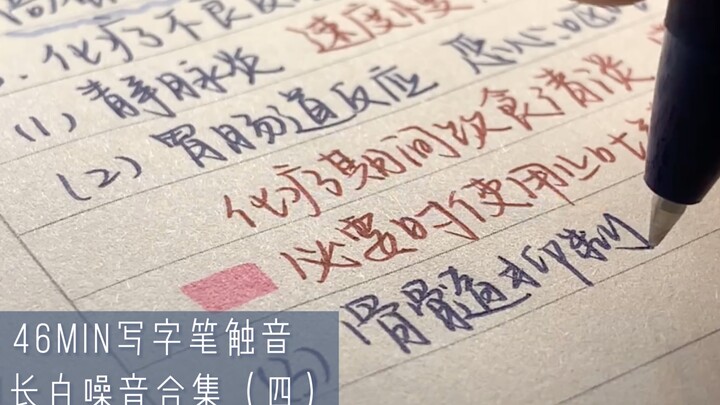 化疗不良反
(1) 静脉炎 速度慢
(2) 胃肠道反应 恶心、呕
化疗期间饮食清淡
必要时使用止吐
骨髓抑制
46MIN写字笔触音
长白噪音合集（四）